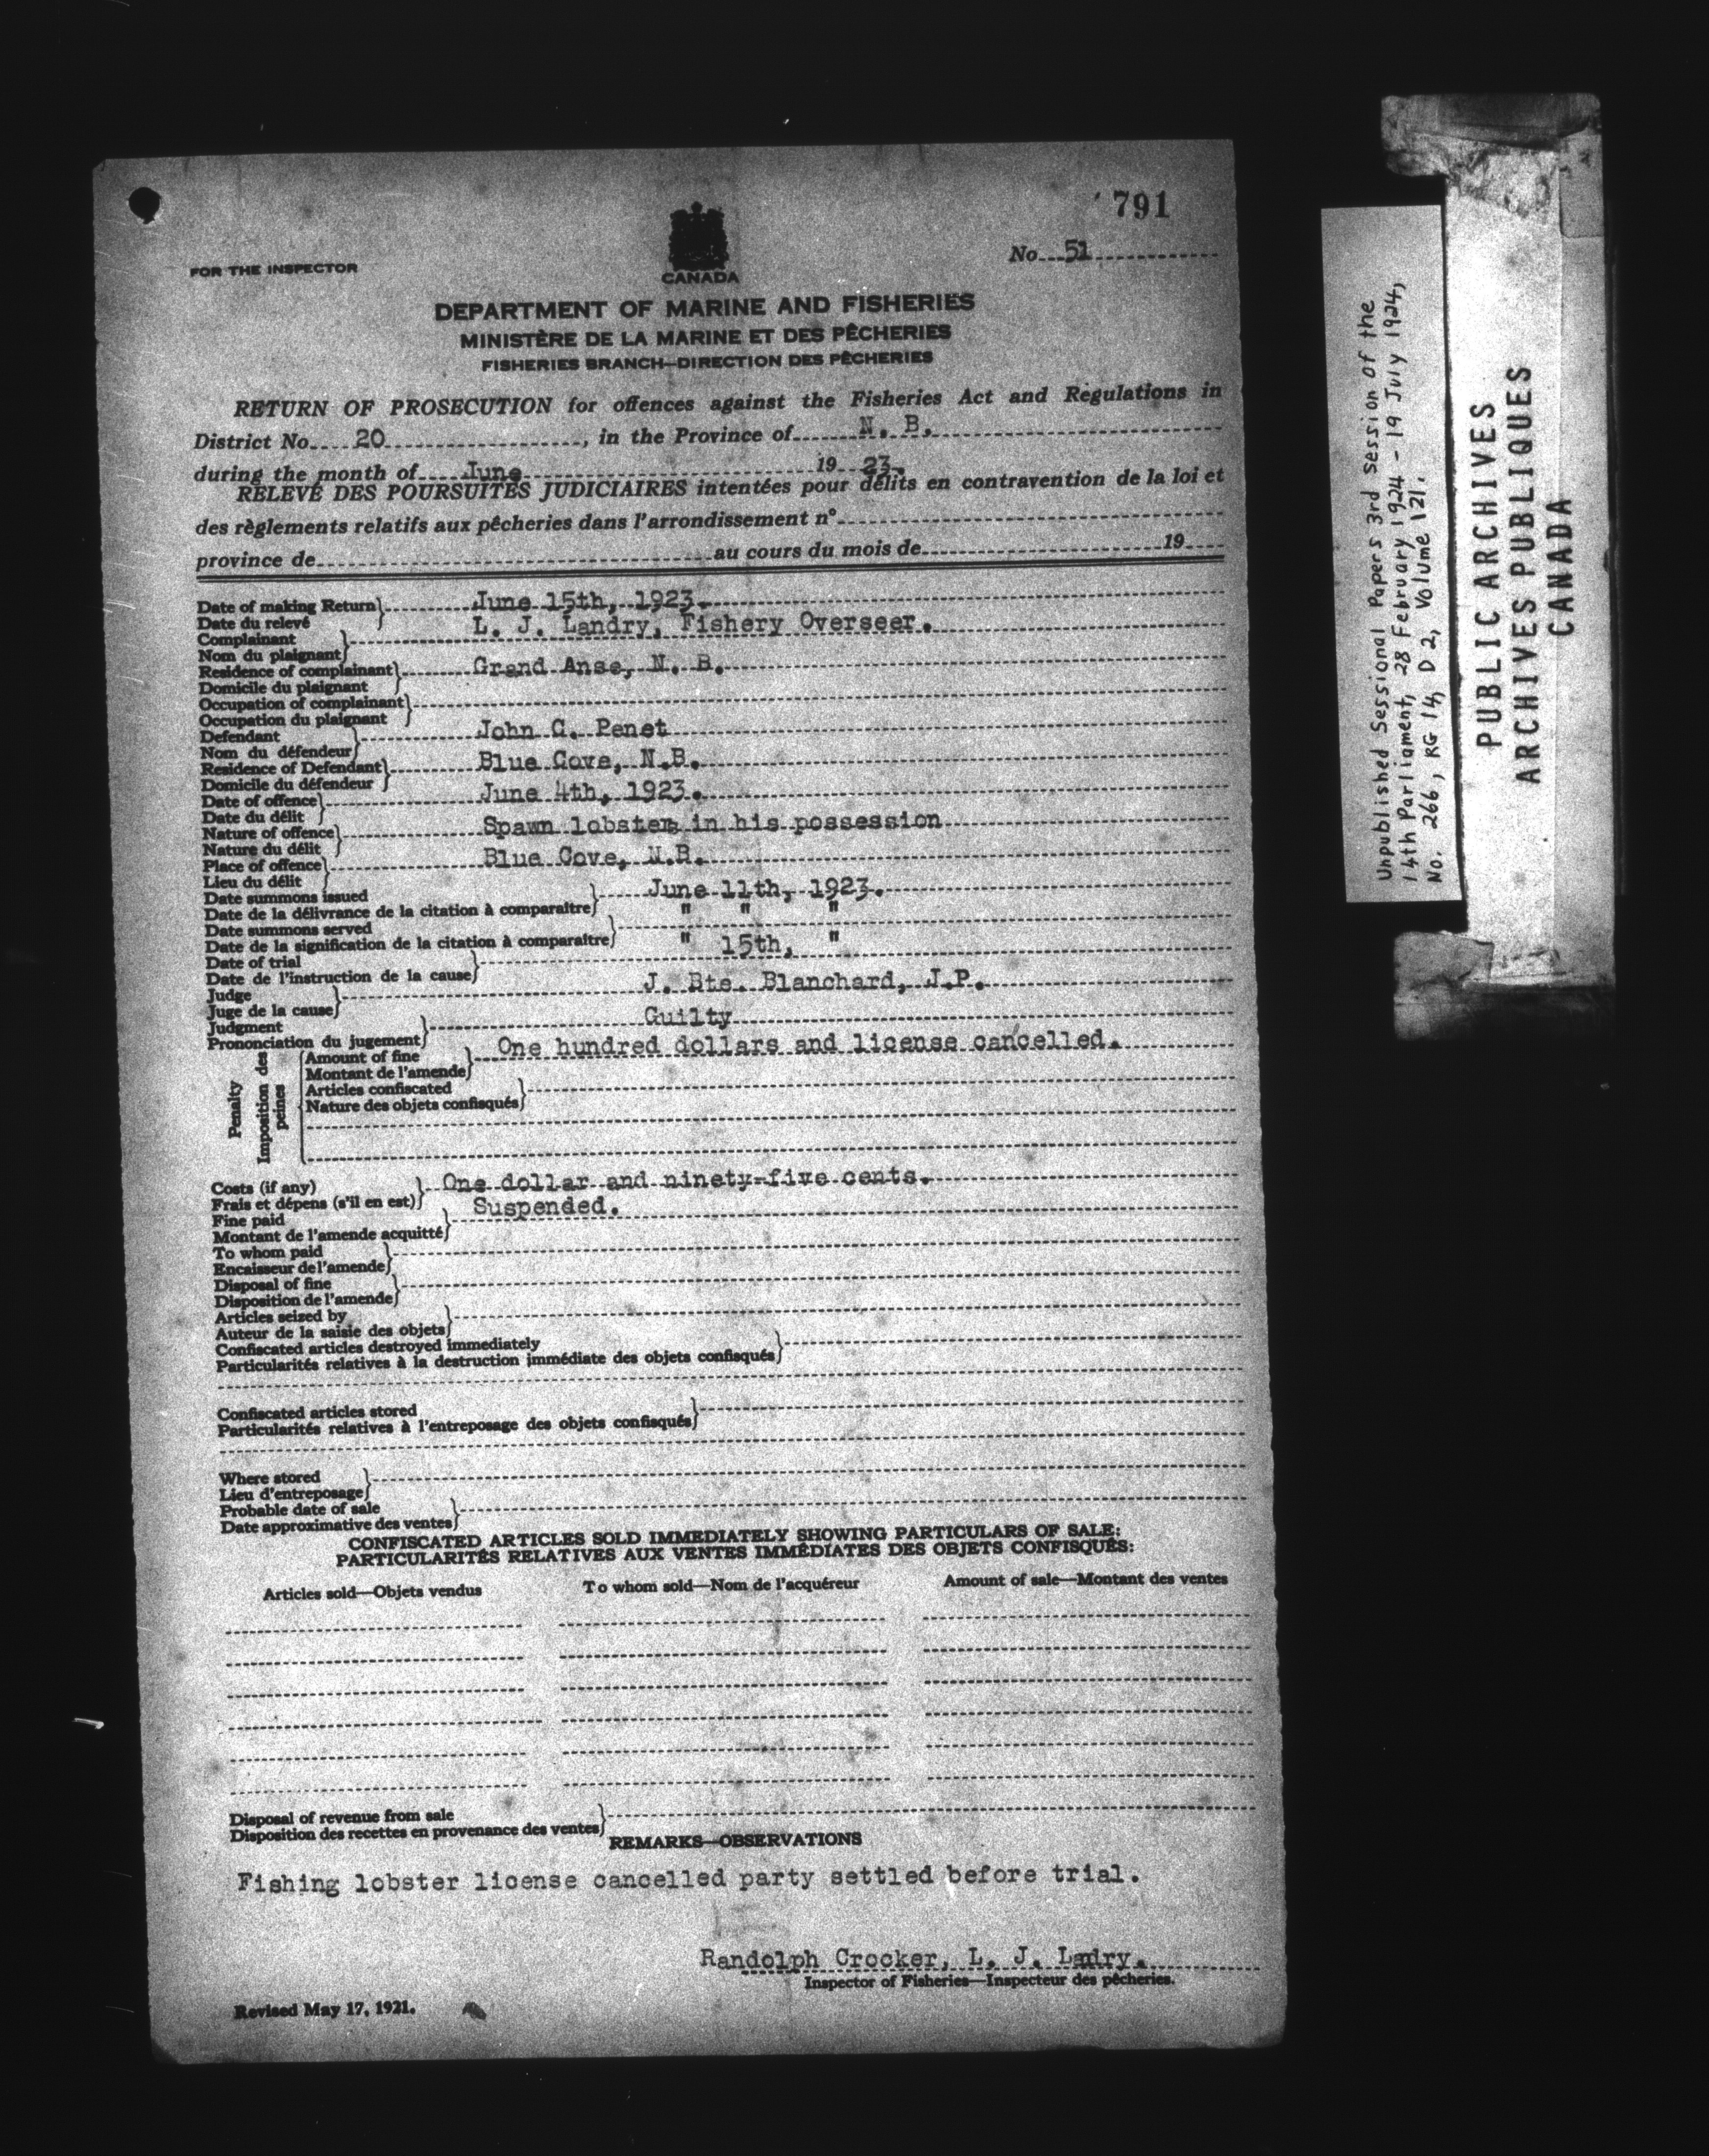 791
No. 51
FOR THE INSPECTOR
CANADA
DEPARTMENT OF MARINE AND FISHERIES
MINISTÈRE DE LA MARINE ET DES PÊCHERIES
FISHERIES BRANCH—DIRECTION DES PÊCHERIES
RETURN OF PROSECUTION for offences against the Fisheries Act and Regulations in
District No. 20, in the Province of N. B.
during the month of June 19 23.
RELEVÉ DES POURSUITES JUDICIAIRES intentées pour délits en contravention de la loi et
des règlements relatifs aux pêcheries dans l'arrondissement n°
province de au cours du mois de 19
Date of making Return June 15th, 1923.
Date du relevé
Complainant L. J. Landry, Fishery Overseer.
Nom du plaignant
Residence of complainant Grand Anse, N. B.
Domicile du plaignant
Occupation of complainant
Occupation du plaignant
Defendant John G. Penet
Nom du défendeur
Residence of Defendant Blue Cove, N.B.
Domicile du défendeur
Date of offence June 4th, 1923.
Date du délit
Nature of offence Spawn lobsters in his possession
Nature du délit
Place of offence Blue Cove, N.B.
Lieu du délit
Date summons issued June 11th, 1923.
Date de la délivrance de la citation à comparaître
Date summons served " " "
Date de la signification de la citation à comparaître
Date of trial " 15th, "
Date de l'instruction de la cause
Judge J. Bte. Blanchard, J.P.
Juge de la cause
Judgment Guilty
Prononciation du jugement
Penalty
Imposition des peines
Amount of fine One hundred dollars and license cancelled.
Montant de l'amende
Articles confiscated
Nature des objets confisqués
Costs (if any) One dollar and ninety-five cents.
Frais et dépens (s'il en est)
Fine paid Suspended.
Montant de l'amende acquitté
To whom paid
Encaisseur de l'amende
Disposal of fine
Disposition de l'amende
Articles seized by
Auteur de la saisie des objets
Confiscated articles destroyed immediately
Particularités relatives à la destruction immédiate des objets confisqués
Confiscated articles stored
Particularités relatives à l'entreposage des objets confisqués
Where stored
Lieu d'entreposage
Probable date of sale
Date approximative des ventes
CONFISCATED ARTICLES SOLD IMMEDIATELY SHOWING PARTICULARS OF SALE:
PARTICULARITÉS RELATIVES AUX VENTES IMMÉDIATES DES OBJETS CONFISQUÉS:
Articles sold—Objets vendus To whom sold—Nom de l'acquéreur Amount of sale—Montant des ventes
Disposal of revenue from sale
Disposition des recettes en provenance des ventes
REMARKS—OBSERVATIONS
Fishing lobster license cancelled party settled before trial.
Randolph Crocker, L. J. Ladry.
Inspector of Fisheries—Inspecteur des pêcheries.
Revised May 17, 1921.
Unpublished Sessional Papers 3rd Session of the
14th Parliament, 28 February 1924 - 19 July 1924,
No. 266, RG 14, D 2, Volume 121.
PUBLIC ARCHIVES
ARCHIVES PUBLIQUES
CANADA